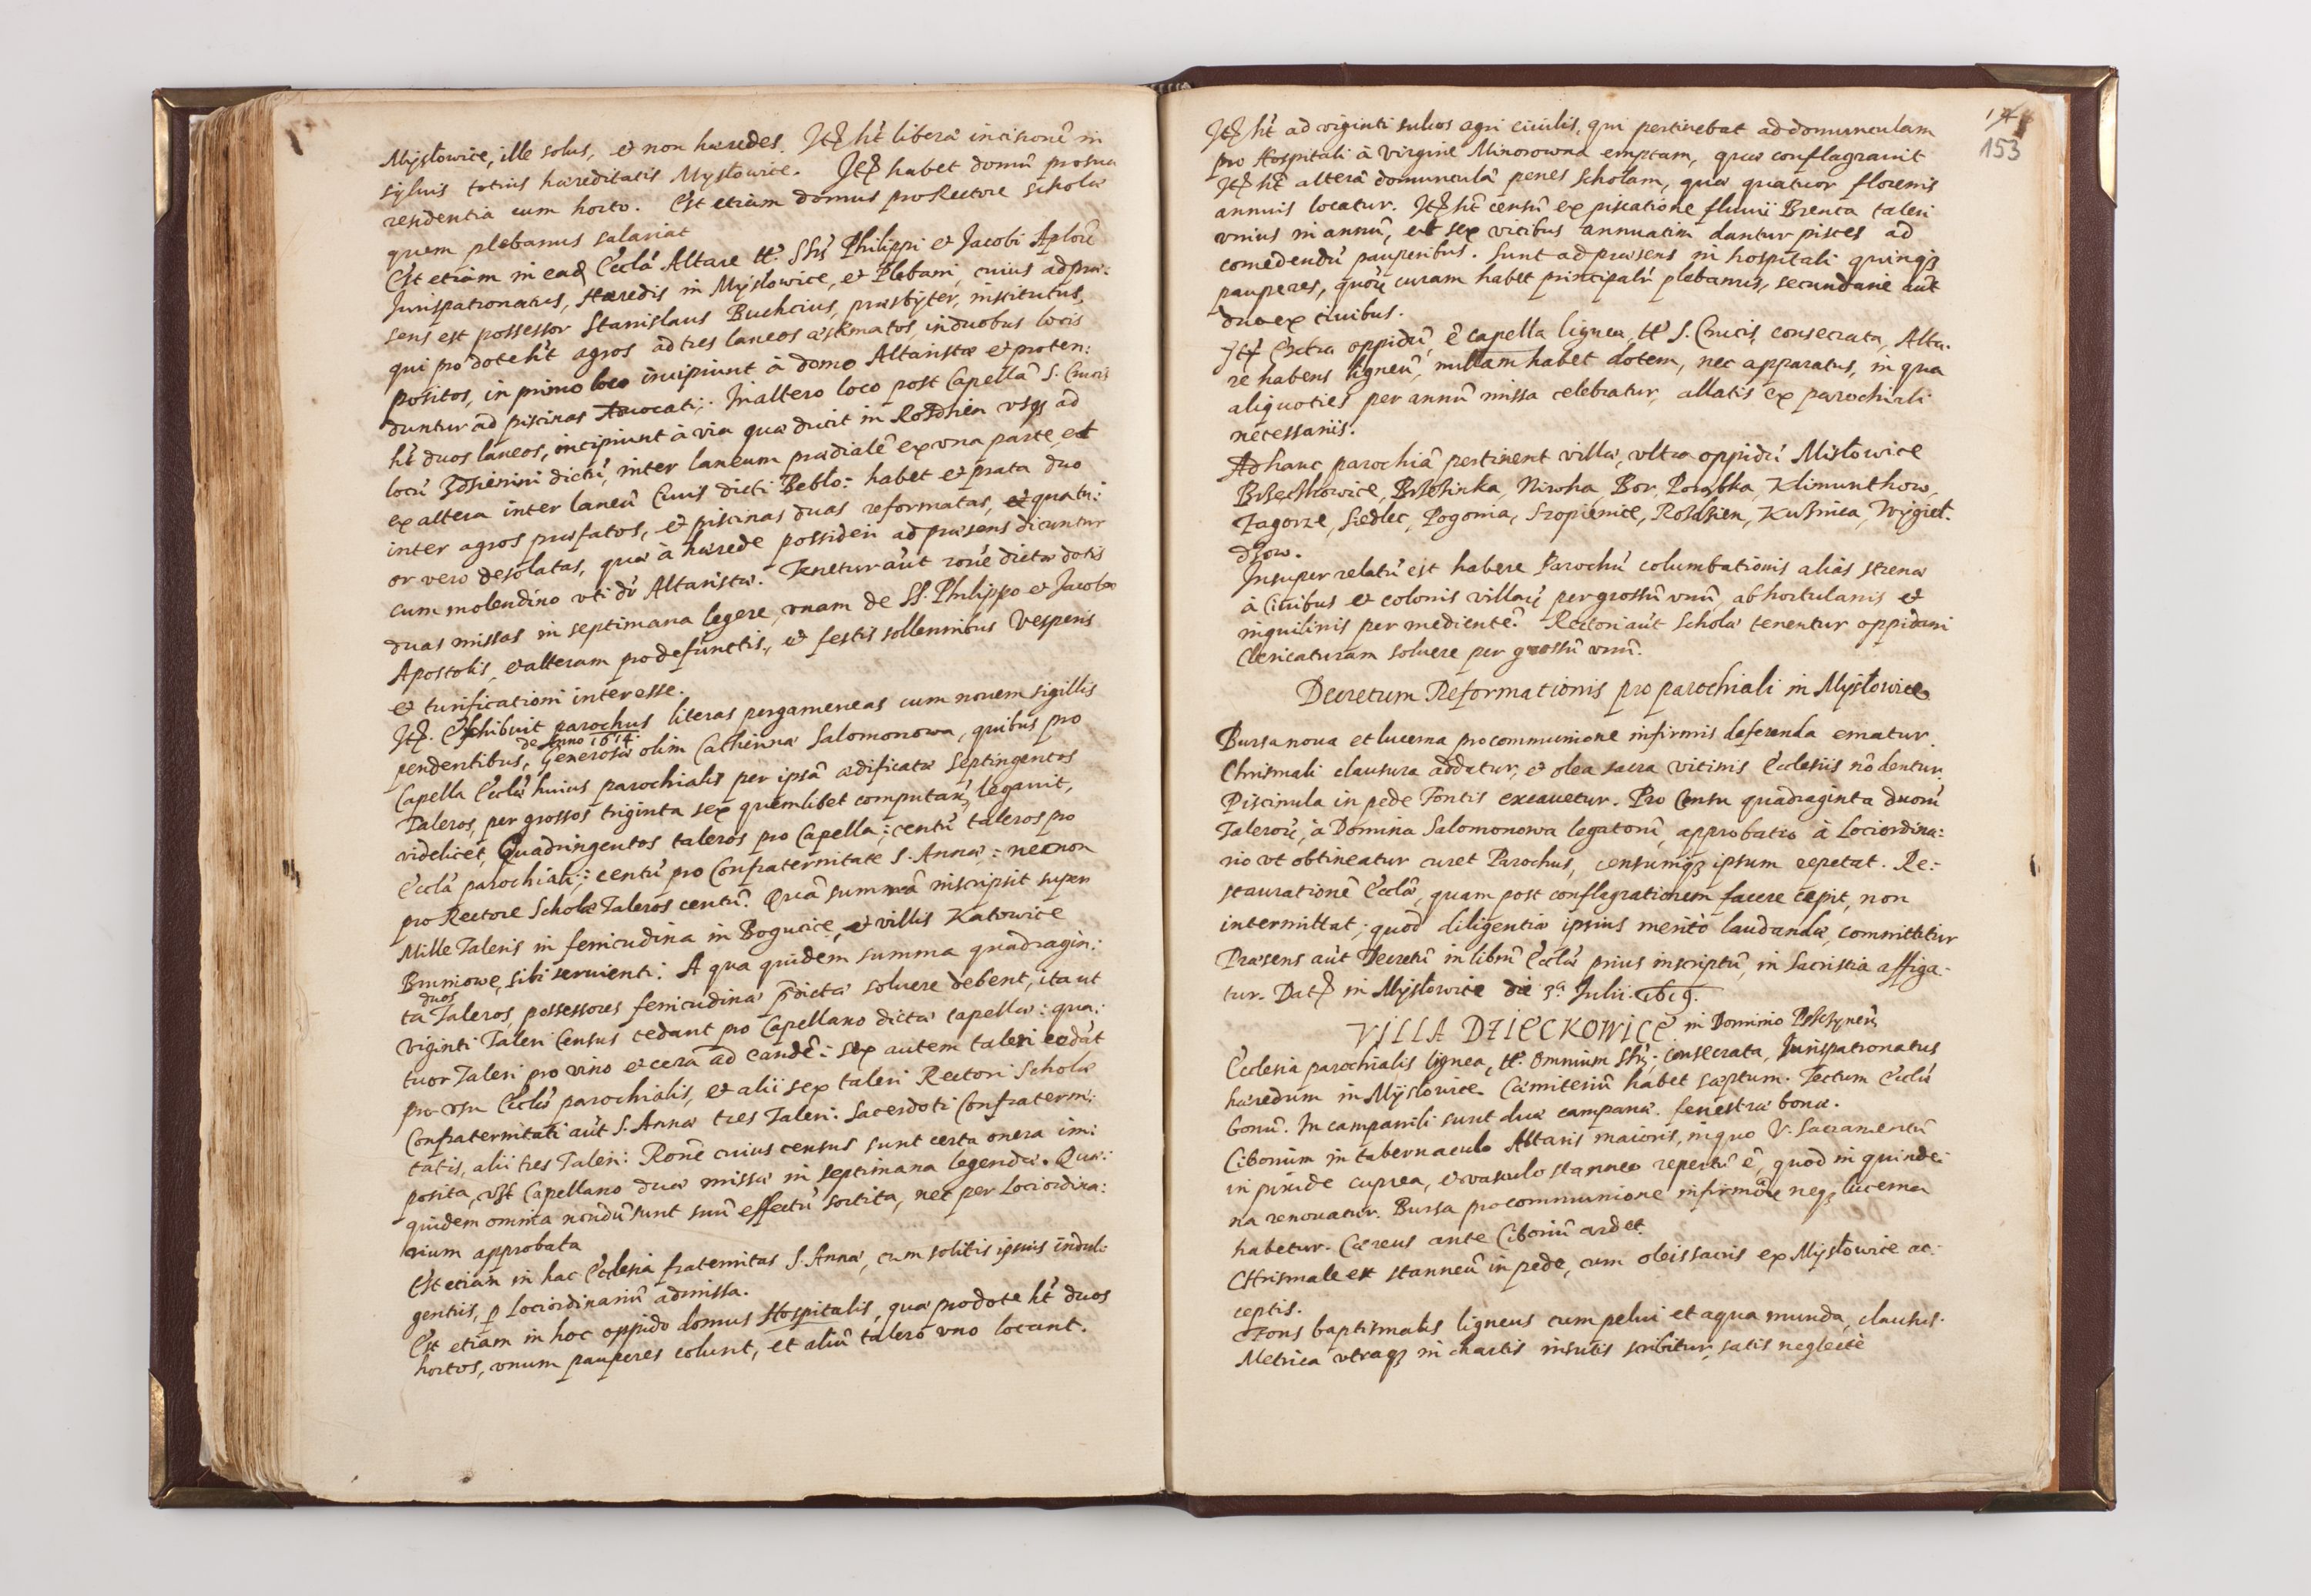 Mysłowice, ille solus, et non hæredes. Itē h̃t liberã incisionẽ in
syluis totius hæreditatis Mysłowice. Itē habet domũ pro sua
residentia cum horto. Est etiam domus pro Rectore scholæ
quem plebanus salariat
Est etiam in eadẽ Eccl̃a Altare tt. SS. Philippi et Jacobi Aplorũ
Jurispatronatus, Hæredis in Mysłowice, et Plebani, cuius ad præ:
sens est possessor Stanislaus Buchcius, præsbyter, institutus,
qui pro dote h̃t agros ad tres laneos æstimatos, in duobus locis
positos, in primo loco incipiunt à domo Altaristæ et proten:
duntur ad piscinas Aduocati; In altero loco post Capellã S. Crucis
h̃t duos laneos, incipiunt à via quæ ducit in Rozdzien vsq̃ ad
locũ Zdzienini dictũ, inter laneum prædialẽ ex vna parte et
ex altera inter laneũ Ciuis dicti Beblo: habet et prata duo
inter agros præfatos, et piscinas duas reformatas, et quatu:
or vero desolatas, quæ à hærede possideri ad præsens dicuntur
cum molendino uti dr̃ Altaristæ. Tenetur aũt rõne dictæ dotis
duas missas in septimana legere, vnam de SS. Philippo et Jacobo
Apostolis, et alteram pro defunctis, et festis sollennibus Vesperis
et turificationi interesse.
Itē. Exhibuit parochus literas pergameneas cum nouem sigillis
de Anno 1614:
pendentibus, Generosæ olim Catherinæ Salomonowa, quibus pro
Capella Eccl̃æ huius parochialis per ipsã ædificata Septingentos
Taleros, per grossos triginta sex quemlibet computan̄ legauit,
videlicet, Quadringentos taleros pro Capella; centũ taleros pro
Eccl̃a parochiali; centũ pro Confraternitate S. Annæ: necnon
pro Rectore Scholæ Taleros centũ. Quã summã inscripsit super
Mille Taleris in fericudina in Bogucice, et villis Katowice
Brinowe, sibi seruienti. A qua quidem summa quadragin:
duos
ta Taleros, possessores fericudinæ p̃dictæ soluere debent, ita ut
viginti Taleri Census cedant pro Capellano dictæ capellæ: qua:
tuor Taleri pro vino et cera ad eandẽ: sex autem taleri cedãt
pro vsu Eccl̃æ parochialis, et alii sex taleri Rectori Scholæ
Confraternitati aũt S. Annæ tres Taleri: Sacerdoti Confraterni:
tatis, alii tres Taleri: Ronẽ cuius census sunt certa onera im:
posita, vst Capellano duæ missæ in septimana legendæ. Quæ:
quidem omnia nondũ sunt suũ effectũ sortita, nec per Lociordina:
rium approbata
Est etiam in hac Ecclesia fraternitas S. Annæ, cum solitis ipsius indul:
gentiis, p Lociordinariũ admissa.
Est etiam in hoc oppido domus Hospitalis, quæ pro dote h̃t duos
hortos, vnum pauperes colunt, et aliũ talero vno locant.
153
Itē h̃t ad viginti sulcos agri ciuilis, qui pertinebat ad domunculam
pro Hospitali à Virgine Minorowna emptam, quæ conflagrauit
Itē h̃t alterã domunculã penes Scholam, quæ quatuor florenis
annuis locatur. Itē h̃t censũ ex piscatione fluuii Brenca taleri
vnius in annũ, et sex vicibus annuatim dantur pisces ad
comedendũ pauperibus. Sunt ad præsens in hospitali quinq̃
pauperes, quorũ curam habet principalẽ plebanus, secundariè aũt
duo ex ciuibus.
Itē Extra oppidũ ẽ capella lignea, tt S. Crucis, consecrata, Alta:
re habens ligneũ, nullam habet dotem, nec apparatus, in qua
aliquoties per annũ missa celebratur, allatis ex parochiali
necessariis.
Ad hanc parochiã pertinent villæ, vltra oppidũ Misłowice
Brzęchkowice, Brzezinka, Niwka, Bor, Porąbka, Klimunthow,
Zagorze, Siedlec, Pogonia, Szopienice, Rozdzien, Kuźnica, Wygieł:
dzow.
Insuper relatũ est habere Parochũ columbationis alias strenæ
à Ciuibus et colonis villarũ per grossũ vnũ, ab hortulanis et
inquilinis per medientẽ. Rectori aũt Scholæ tenentur oppidani
Clericaturam soluere per grossũ vnũ.
Decretum Reformationis pro parochiali in Mysłowice
Bursa noua et lucerna pro communione infirmis deferenda ematur.
Chrismali clausura addatur, et olea sacra vicinis Ecclesiis nõ dentur.
Piscinula in pede Fontis excauetur. Pro Censu quadraginta duorũ
Talerorũ, à Domina Salomonowa legatorũ, approbatio à Lociordina:
rio vt obtineatur curet Parochus, censumq̃ ipsum repetat. Re:
staurationẽ Eccl̃æ, quam post conflagrationem facere cæpit, non
intermittat; quod diligentiæ ipsius meritò laudandæ, committitur
Præsens aũt Decretũ in librũ Eccl̃æ prius inscriptũ, in Sacristia affiga:
tur. Datē in Mysłowice die 3ª Julii. 1619.
VILLA DZIECKOWICE in Dominio Psczynen̄
Ecclesia parochialis lignea, tt. Omnium SS.; consecrata, Jurispatronatus
hæredum in Mysłowice. Cæmiteriũ habet sæptum. Tectum Eccl̃æ
bonũ. In campanili sunt duæ campanæ. fenestræ bonæ.
Ciborium in tabernaculo Altaris maioris, in quo V. Sacramentũ
in pixide cuprea, et vasculo stanneo repertũ ẽ, quod in quinde:
na renouatur. Bursa pro communione infirmorũ neq̃ lucerna
habetur. Cæreus ante Ciboriũ ardet.
Chrismale est stanneũ in pede, cum oleis sacris ex Mysłowice ac:
ceptis.
Fons baptismalis ligneus cum pelui et aqua munda, clausus.
Metrica vtraq̃ in chartis insutis scribitur, satis neglectè